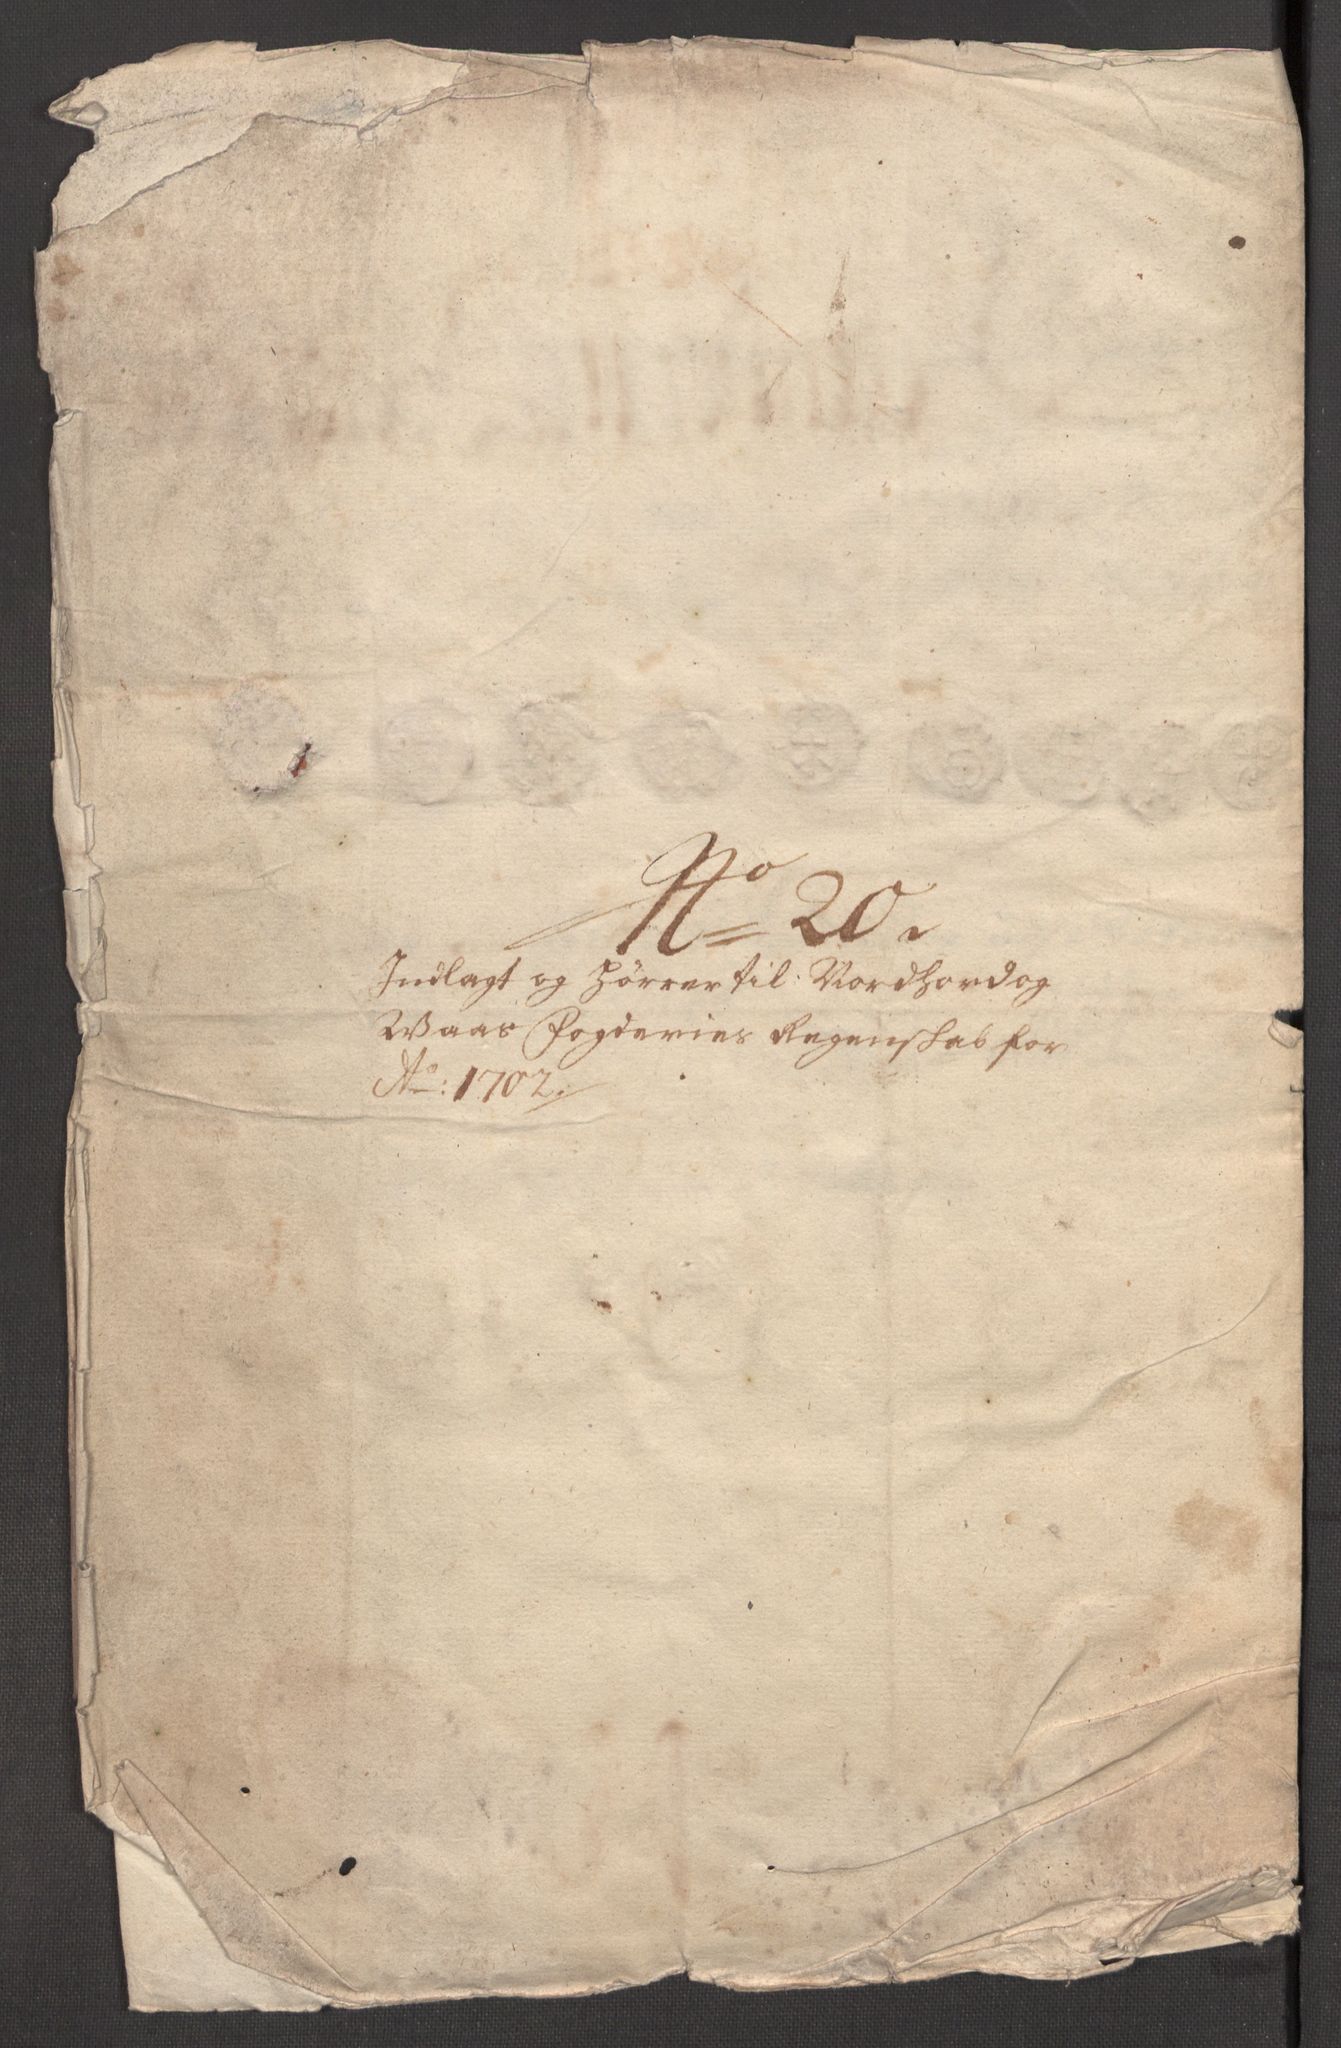 No 20.
Indlagt og hörrer til Nordhord og
Waas Fogderies Regenskab for
Ao: 1702.